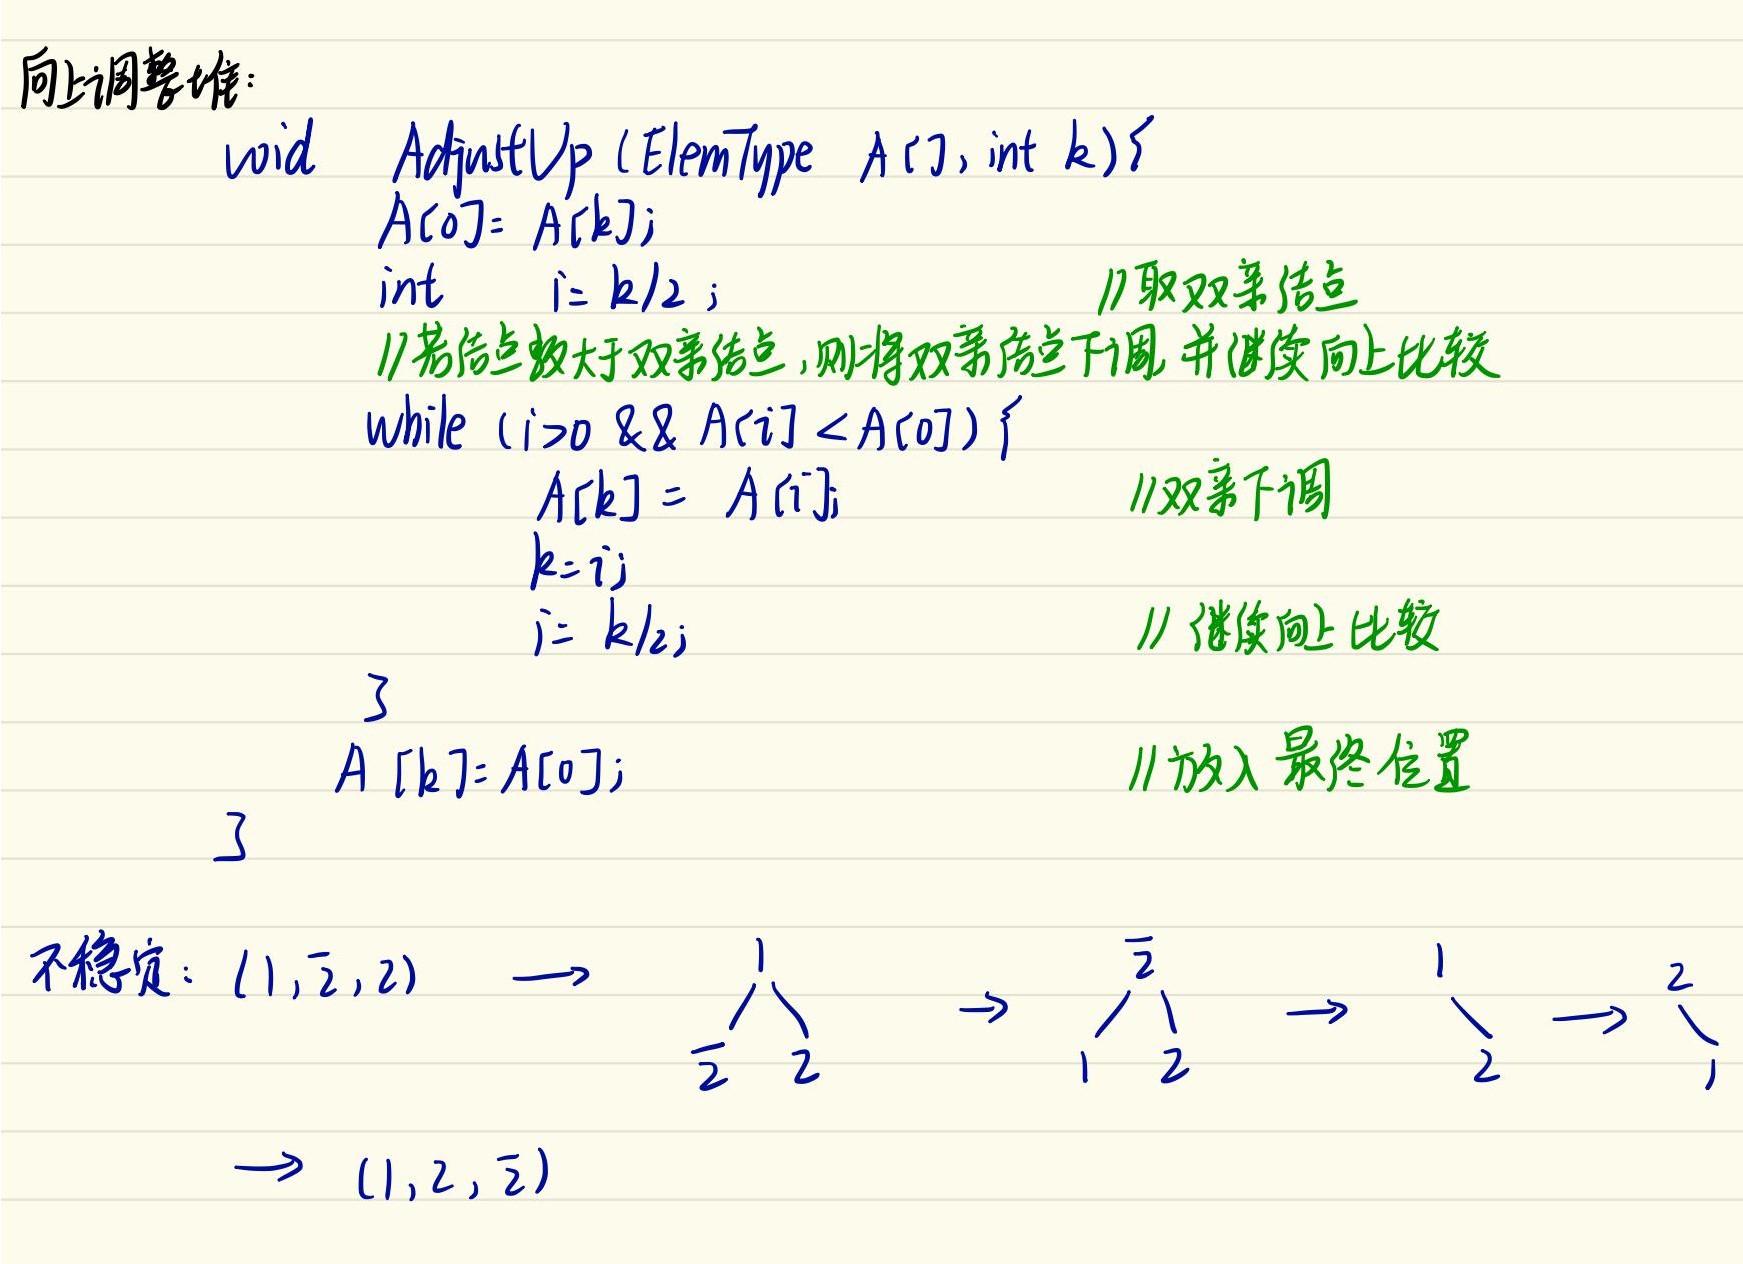 向上调整堆:
void AdjustUp (ElemType A[], int k){
A[0]= A[k];
int i= k/2 ; //取双亲结点
//若结点数大于双亲结点,则将双亲结点下调,并继续向上比较
while (i>0 && A[i] < A[0]) {
A[k] = A[i]; //双亲下调
k=i;
i= k/2; //继续向上比较
}
A[k]=A[0]; //放入最终位置
}
不稳定: (1, 2̅, 2) → 1 → 2̅ → 1 → 2
2̅ 2 1 2 2 1
→ (1, 2, 2̅)